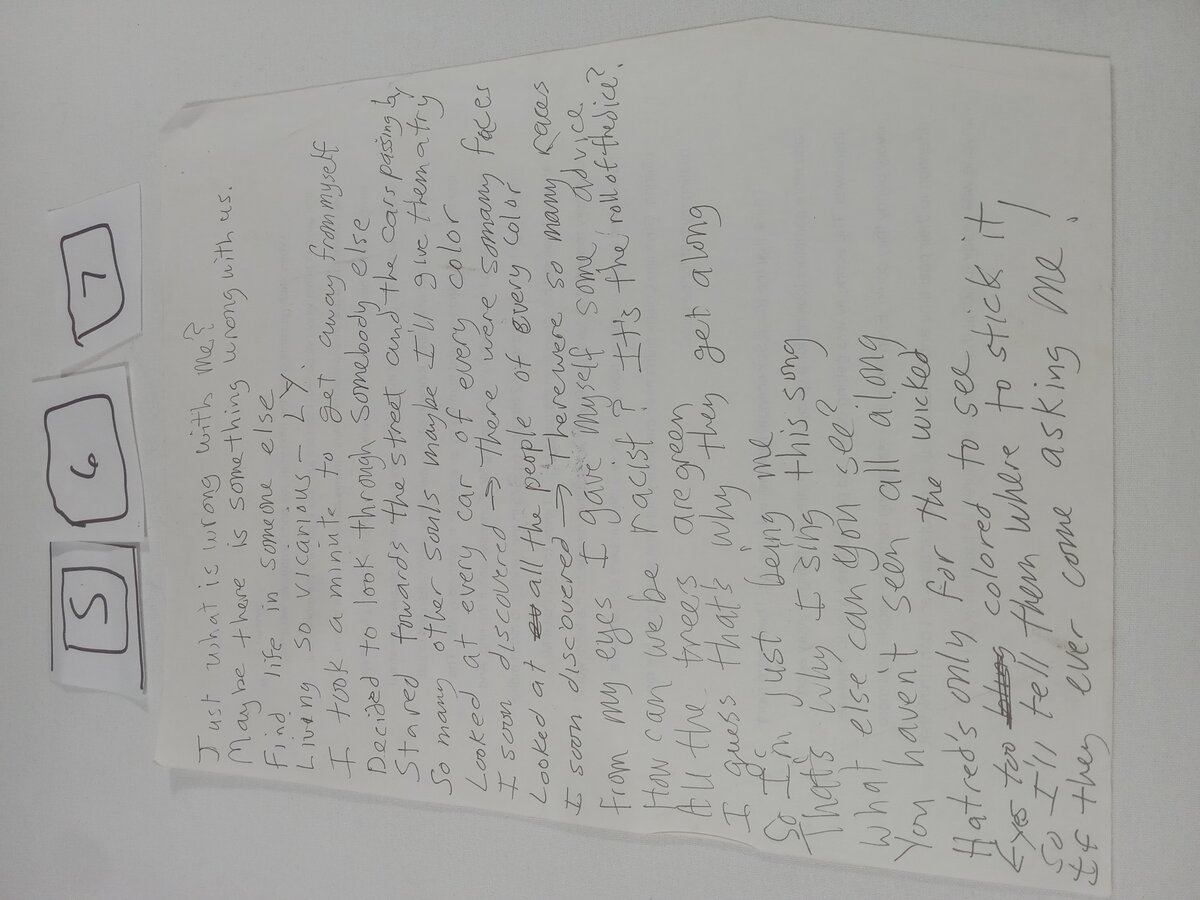 5 6 7
Just what is wrong with Me?
Maybe there is something wrong with us.
Find life in someone else
Living so vicarious - LY.
I took a minute to get away from myself
Decided to look through Somebody else
Stared towards the street and the cars passing by
So many other souls maybe I'll give them a try
Looked at every car of every color
I soon discovered → there were so many faces
Looked at all the people of every color
I soon discovered → There were so many races
From my eyes I gave myself some advice
How can we be racist? It's the roll of the dice?
All the trees are green
I guess that's why they get along
So I'm just being me
That's why I sing this song
What else can you see?
You haven't seen all along
Hatred's only for the wicked
Eyes too colored to see
So I'll tell them where to stick it,
If they ever come asking me!